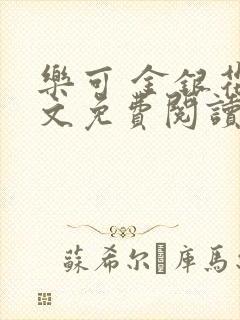 樂可 金銀花
文免費閱讀
蘇希尔 庫馬